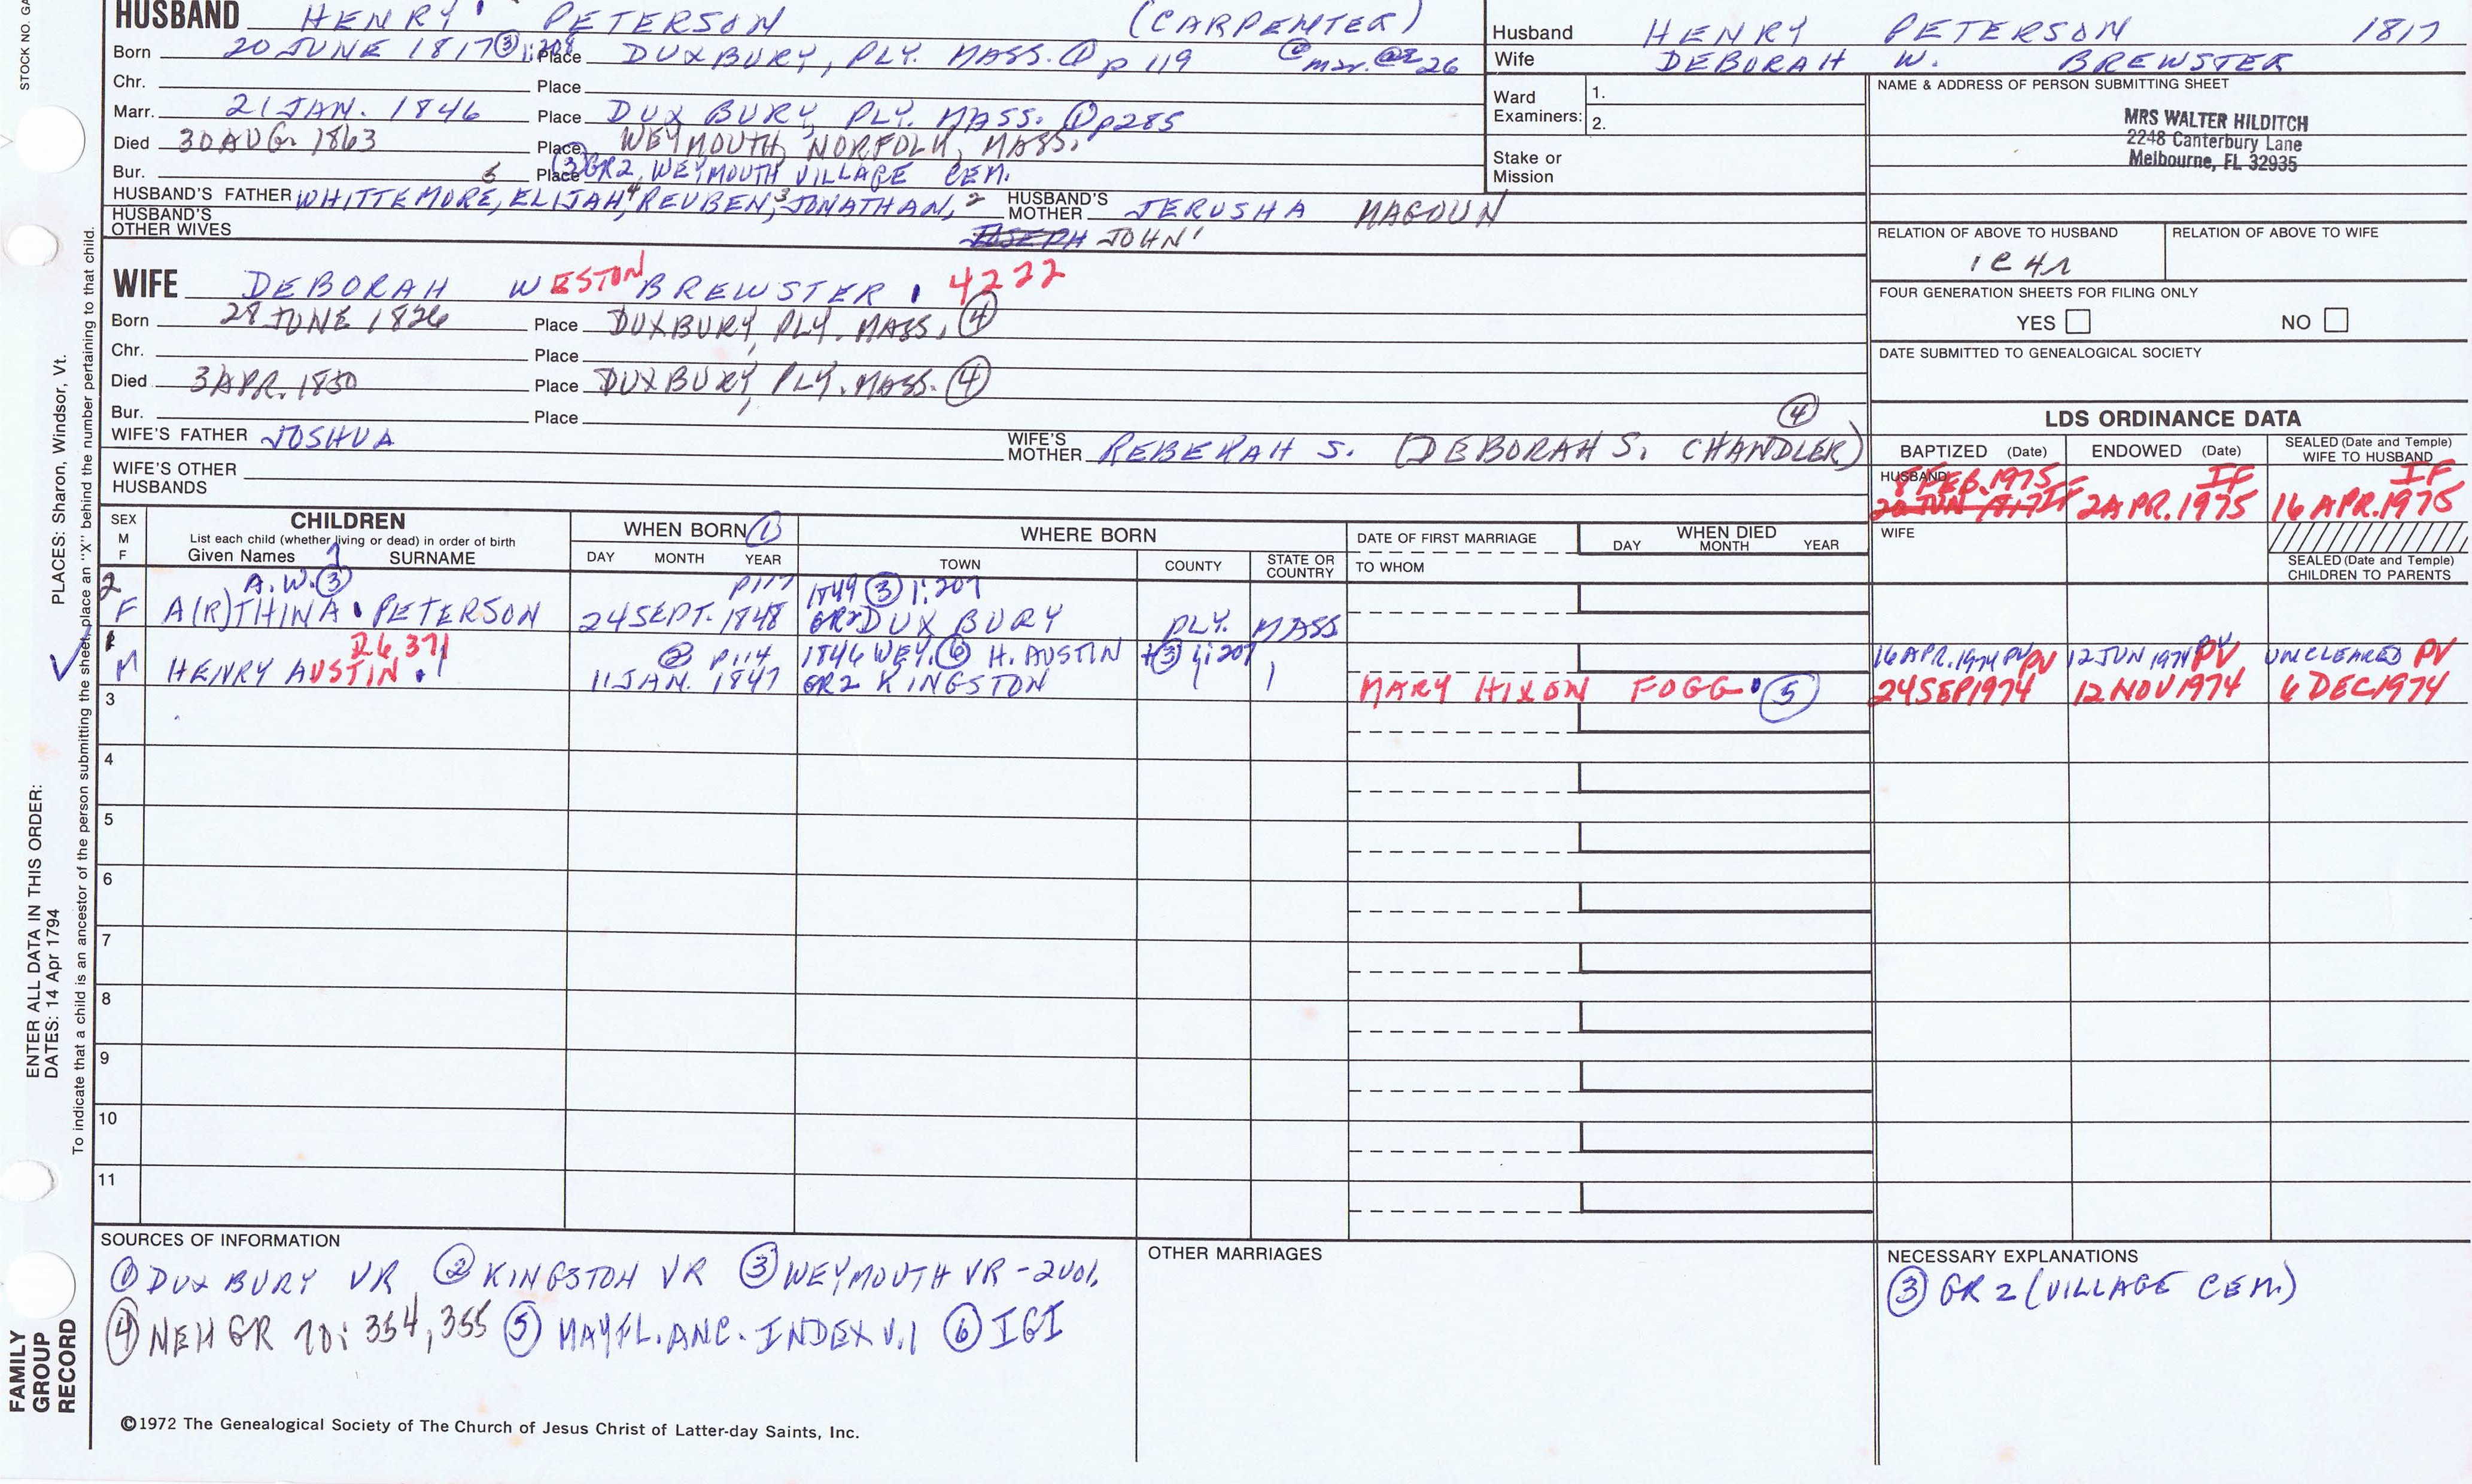 STOCK NO. GA
HUSBAND HENRY PETERSON (CARPENTER)
Born 20 JUNE 1817 ③ 1:208 Place DUXBURY, PLY. MASS. ① p 119
Chr. Place
Marr. 21 JAN. 1846 Place DUXBURY, PLY. MASS. ① p285
Died 30 AUG. 1863 Place WEYMOUTH, NORFOLK, MASS.
Bur. Place ③ GR2, WEYMOUTH VILLAGE CEM.
HUSBAND'S FATHER WHITTEMORE,5 ELIJAH,4 REUBEN,3 JONATHAN,2 HUSBAND'S MOTHER JERUSHA MAGOUN
HUSBAND'S OTHER WIVES JOSEPH JOHN1
Husband HENRY PETERSON 1817
Wife DEBORAH W. BREWSTER
Ward Examiners: 1.
2.
Stake or Mission
NAME & ADDRESS OF PERSON SUBMITTING SHEET
MRS WALTER HILDITCH
2248 Canterbury Lane
Melbourne, FL 32935
RELATION OF ABOVE TO HUSBAND RELATION OF ABOVE TO WIFE
1C4R
FOUR GENERATION SHEETS FOR FILING ONLY
YES NO
DATE SUBMITTED TO GENEALOGICAL SOCIETY
WIFE DEBORAH WESTON BREWSTER 4222
Born 28 JUNE 1826 Place DUXBURY, PLY. MASS. ④
Chr. Place
Died 3 APR. 1850 Place DUXBURY, PLY. MASS. ④
Bur. Place
WIFE'S FATHER JOSHUA WIFE'S MOTHER REBEKAH S. (DEBORAH S. CHANDLER) ④
WIFE'S OTHER HUSBANDS
LDS ORDINANCE DATA
BAPTIZED (Date) ENDOWED (Date) SEALED (Date and Temple) WIFE TO HUSBAND
HUSBAND FEB. 1975 IF IF
20 JUN 1817 IF 2 APR. 1975 16 APR. 1975
WIFE
SEALED (Date and Temple) CHILDREN TO PARENTS
SEX M F
CHILDREN
List each child (whether living or dead) in order of birth
Given Names SURNAME
WHEN BORN ①
DAY MONTH YEAR
WHERE BORN
TOWN COUNTY STATE OR COUNTRY
DATE OF FIRST MARRIAGE
TO WHOM
WHEN DIED
DAY MONTH YEAR
2 A.W. ③ p117 1849 ③ 1:207
F A(R)THINA PETERSON 24 SEPT. 1848 GR2 DUXBURY PLY. MASS
1 26,371 ② p114 1846 WEY. ⑥ H. AUSTIN ③ 1:207 16 APR. 1974 PV PV 12 JUN 1974 PV PV UNCLEARED PV
M HENRY AUSTIN 11 JAN. 1847 GR2 KINGSTON MARY HIXON FOGG ⑤ 24 SEP 1974 12 NOV 1974 6 DEC 1974
3
4
5
6
7
8
9
10
11
SOURCES OF INFORMATION
① DUXBURY VR ② KINGSTON VR ③ WEYMOUTH VR - 2 vol.
④ NEHGR 70: 354, 355 ⑤ MAYFL. ANC. INDEX V.1 ⑥ IGI
OTHER MARRIAGES
NECESSARY EXPLANATIONS
③ GR 2 (VILLAGE CEM)
©1972 The Genealogical Society of The Church of Jesus Christ of Latter-day Saints, Inc.
FAMILY GROUP RECORD
ENTER ALL DATA IN THIS ORDER:
DATES: 14 Apr 1794
PLACES: Sharon, Windsor, Vt.
To indicate that a child is an ancestor of the person submitting the sheet, place an "X" behind the number pertaining to that child.